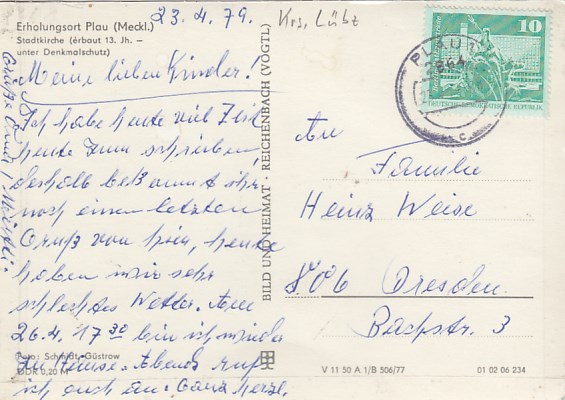 23.4.79.
Krs. Lübz
Erholungsort Plau (Meckl.)
Stadtkirche (erbaut 13. Jh. –
unter Denkmalschutz)
Meine lieben Kinder!
Ich habe heute viel Zeit
heute zum schreiben
deshalb bekommt ihr
noch einen letzten
Gruß von hier, heute
haben wir sehr
schlechtes Wetter. Am
26.4. 17 30 bin ich wieder
zu Hause. Abends ruf
ich euch an. Ganz herzl.
Grüße
Foto: Schmidt, Güstrow
DDR 0,20 M
BILD UND HEIMAT · REICHENBACH (VOGTL)
10
DEUTSCHE DEMOKRATISCHE REPUBLIK
PLAU
864
c
An
Familie
Heinz Weise
806 Dresden
Bachstr. 3
V 11 50 A 1/B 506/77
01 02 06 234